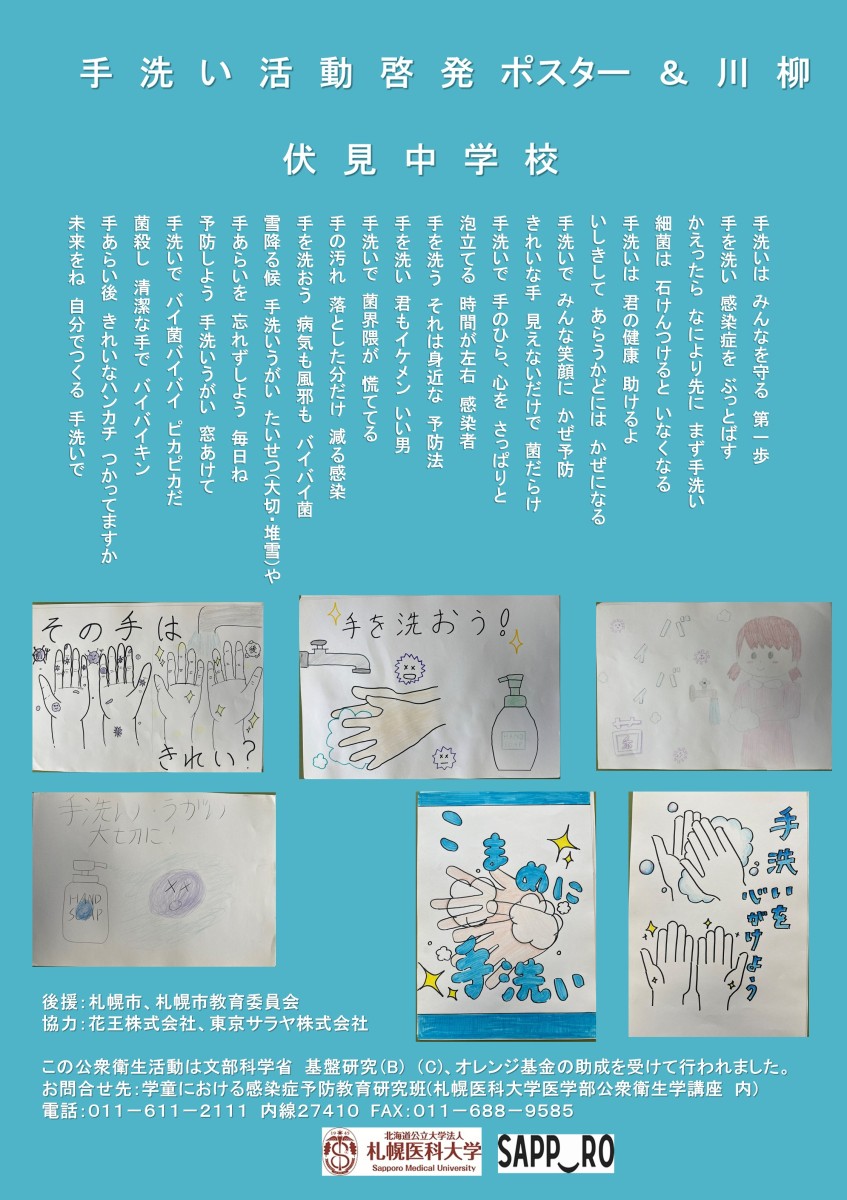 手洗い活動啓発ポスター ＆ 川柳
伏見中学校
手洗いは みんなを守る 第一歩
手を洗い 感染症を ぶっとばす
かえったら なにより先に まず手洗い
細菌は 石けんつけると いなくなる
手洗いは 君の健康 助けるよ
いしきして あらうかどには かぜになる
手洗いで みんな笑顔に かぜ予防
きれいな手 見えないだけで 菌だらけ
手洗いで 手のひら、心を さっぱりと
泡立てる 時間が左右 感染者
手を洗う それは身近な 予防法
手を洗い 君もイケメン いい男
手洗いで 菌界隈が 慌ててる
手の汚れ 落とした分だけ 減る感染
手を洗おう 病気も風邪も バイバイ菌
雪降る候 手洗いうがい たいせつ（大切・堆雪）や
手あらいを 忘れずしよう 毎日ね
予防しよう 手洗いうがい 窓あけて
手洗いで バイ菌バイバイ ピカピカだ
菌殺し 清潔な手で バイバイキン
手あらい後 きれいなハンカチ つかってますか
未来をね 自分でつくる 手洗いで
その手は
きれい?
手を洗おう!
HAND
SOAP
バイ
バイ
手洗い・うがい
大切に!
HAND
SOAP
こまめに
手洗い
手洗いを
心がけよう
後援：札幌市、札幌市教育委員会
協力：花王株式会社、東京サラヤ株式会社
この公衆衛生活動は文部科学省 基盤研究（B）（C）、オレンジ基金の助成を受けて行われました。
お問合せ先：学童における感染症予防教育研究班（札幌医科大学医学部公衆衛生学講座 内）
電話：０１１－６１１－２１１１ 内線２７４１０ FAX：０１１－６８８－９５８５
北海道公立大学法人
札幌医科大学
Sapporo Medical University
SAPP_RO